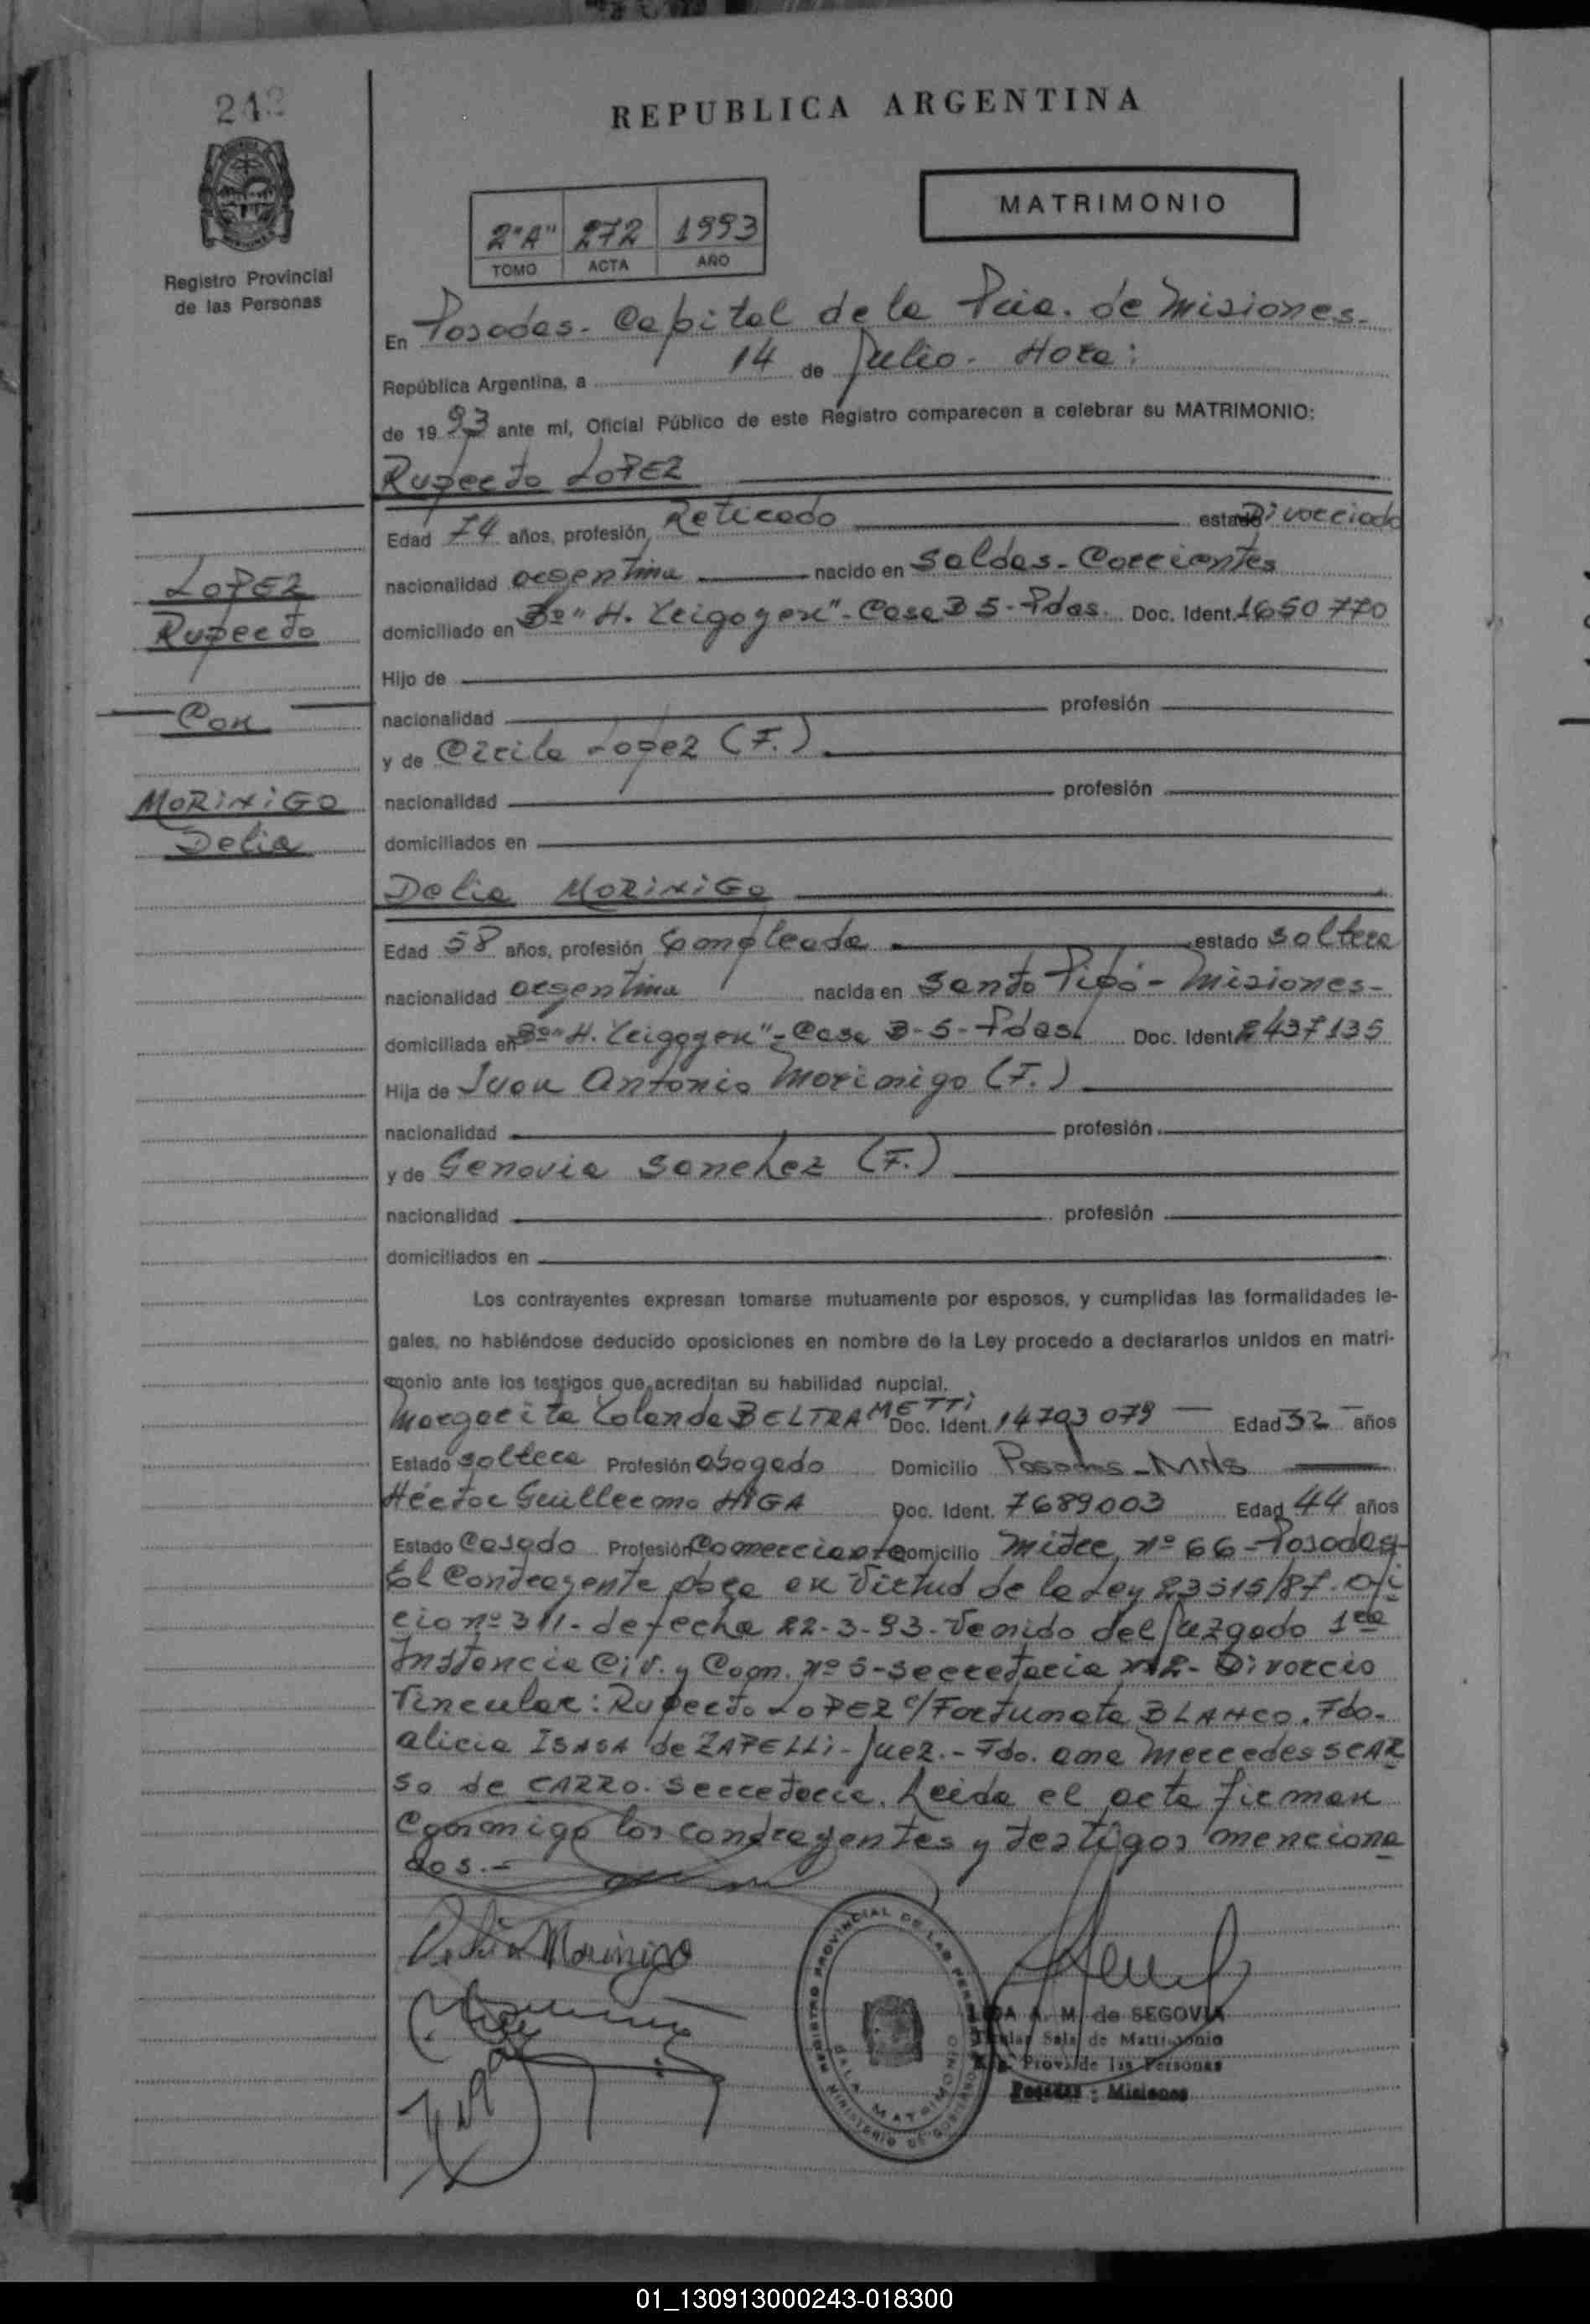 242
REPUBLICA ARGENTINA
MATRIMONIO
2"A" 272 1993
TOMO ACTA AÑO
Registro Provincial
de las Personas
En Posadas - Capital de la Pcia. de Misiones -
República Argentina, a 14 de Julio - Hora:
de 1993 ante mí, Oficial Público de este Registro comparecen a celebrar su MATRIMONIO:
Ruperto LOPEZ
Edad 74 años, profesión Retirado estado Divorciado
nacionalidad argentina nacido en Saldas - Corrientes
domiciliado en Bº "H. Yrigoyen" - Casa B 5 - Pdas. Doc. Ident. 1650770
Hijo de
nacionalidad profesión
y de Lopez (F.)
nacionalidad profesión
domiciliados en
LOPEZ
Ruperto
Con
MORINIGO
Delia
Delia MORINIGO
Edad 58 años, profesión Empleada estado soltera
nacionalidad argentina nacida en Santo Pipó - Misiones -
domiciliada en Bº "H. Yrigoyen" - Casa B - 5 - Pdas. Doc. Ident. 2437135
Hija de Juan Antonio Morinigo (F.)
nacionalidad profesión
y de Genovia Sanchez (F.)
nacionalidad profesión
domiciliados en
Los contrayentes expresan tomarse mutuamente por esposos, y cumplidas las formalidades le-
gales, no habiéndose deducido oposiciones en nombre de la Ley procedo a declararlos unidos en matri-
monio ante los testigos que acreditan su habilidad nupcial.
Margarita Yolanda BELTRAMETTI Doc. Ident. 14703079 Edad 32 años
Estado soltera Profesión abogado Domicilio Posadas - Mnes
Héctor Guillermo HIGA Doc. Ident. 7689003 Edad 44 años
Estado Casado Profesión Comerciante Domicilio Mitre nº 66 - Posadas -
El Contrayente obra en Virtud de la Ley 23515/87 - Ofi
cio nº 311 - de fecha 22-3-93 - Venido del Juzgado 1ra
Instancia Civ. y Com. nº 5 - Secretaria nº 2 - Divorcio
Vincular: Ruperto LOPEZ c/ Fortunata BLANCO. Fdo.
Alicia ISASA de ZAPELLI - Juez. - Fdo. Ana Mercedes SCAR
SO de CAZZO. Secretaria. Leida el acta firman
Conmigo los contrayentes y testigos menciona
dos.-
Delia Morinigo
REGISTRO PROVINCIAL DE LAS PERSONAS
SALA MATRIMONIO
MINISTERIO DE GOBIERNO
A. M. de SEGOVIA
Titular Sala de Matrimonio
Reg. Prov. de las Personas
Posadas : Misiones
01_130913000243-018300